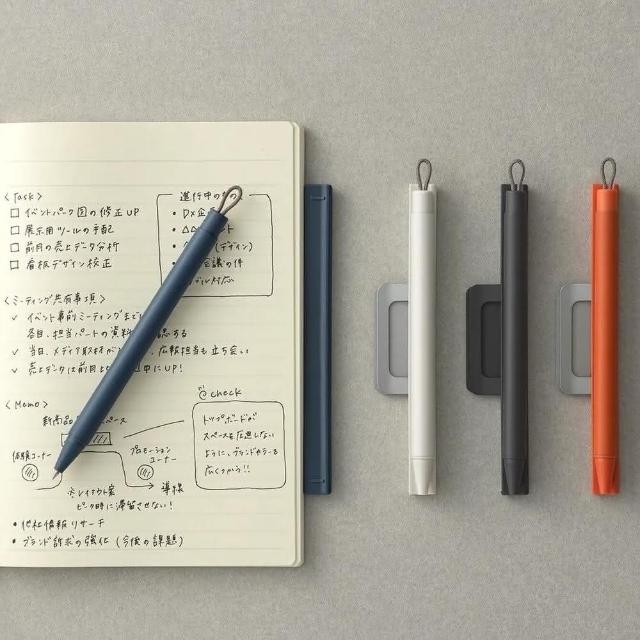 <Task>
□ イベントパーク図の修正UP
□ 展示用ツールの手配
□ 前月の売上データ分析
□ 看板デザイン校正
進行中のもの
• DX企
• △△ ント
(デザイン)
会議の件
対応
<ミーティング共有事項>
✓ イベント事前ミーティングまでに
各自、担当パートの資料 認する
✓ 当日、メディア取材が 、広報担当も立ち会い
✓ 売上データは前日 中にUP!
<Memo>
新商品 スペース
体験コーナー
プロモーション
コーナー
導線
※レイアウト案
ピーク時に滞留させない!
check
トップボードが
スペースを圧迫しない
ように、ブランドカラーを
広くつかう!!
• 他社情報リサーチ
• ブランド訴求の強化 (今後の課題)